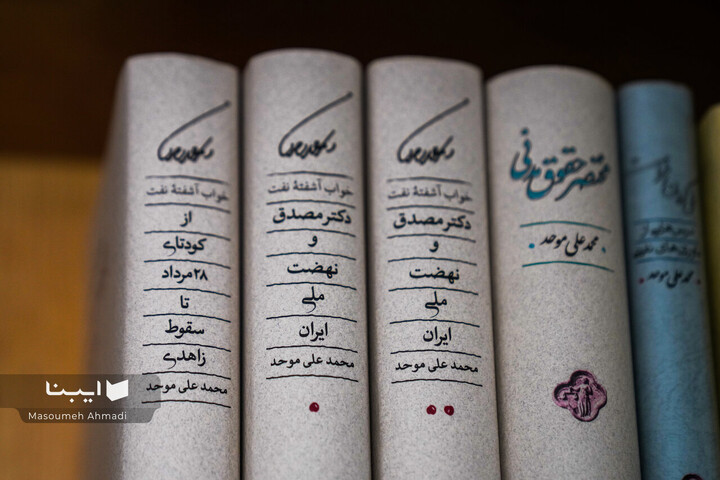 خواب آشفتهٔ نفت
از
کودتای
۲۸ مرداد
تا
سقوط
زاهدی
محمد علی موحد
خواب آشفتهٔ نفت
دکتر مصدق
و
نهضت
ملی
ایران
محمد علی موحد
خواب آشفتهٔ نفت
دکتر مصدق
و
نهضت
ملی
ایران
محمد علی موحد
مختصر حقوق مدنی
محمد علی موحد
محمد علی موحد
ایبنا
Masoumeh Ahmadi